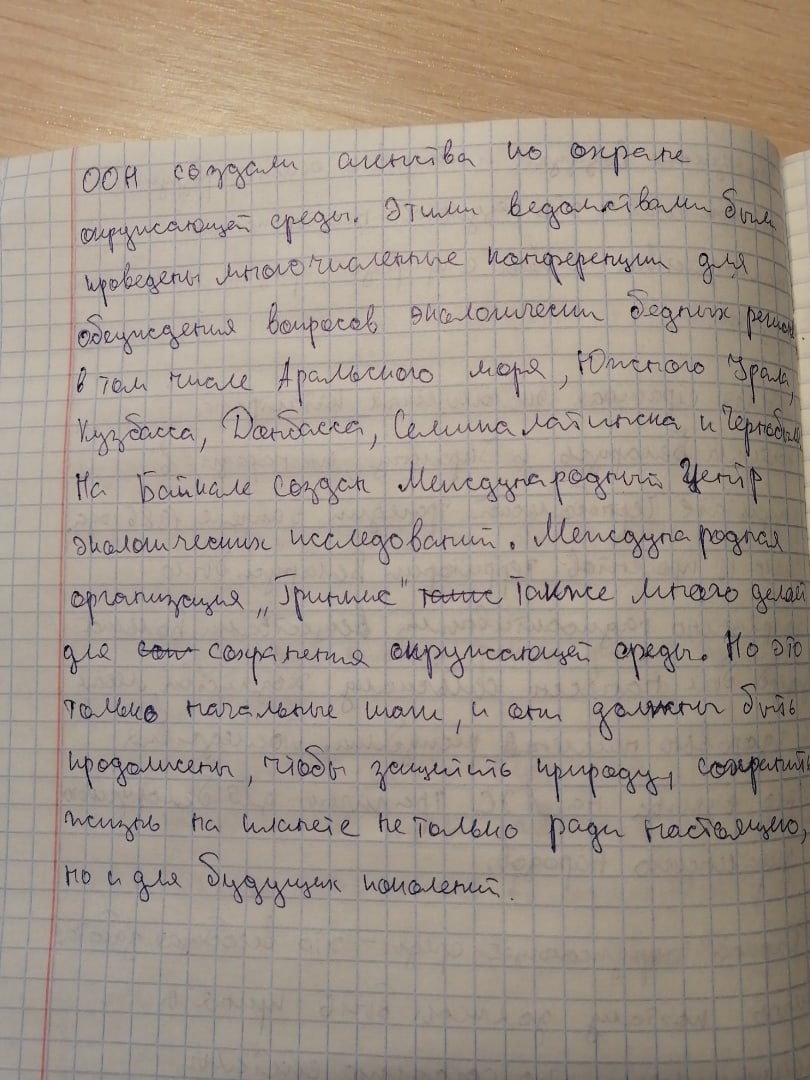 ООН создали агенства по охране
окружающей среды. Этими ведомствами были
проведены многочисленные конференции для
обсуждения вопросов экологически бедных регионов
в том числе Аральского моря, Южного Урала,
Кузбасса, Донбасса, Семипалатинска и Чернобыля
На Байкале создан Международный Центр
экологических исследований. Международная
организация „Гринпис" также много делает
для сохранения окружающей среды. Но это
только начальные шаги, и они должны быть
продолжены, чтобы защитить природу, сохранить
жизнь на планете не только ради настоящего,
но и для будущих поколений.